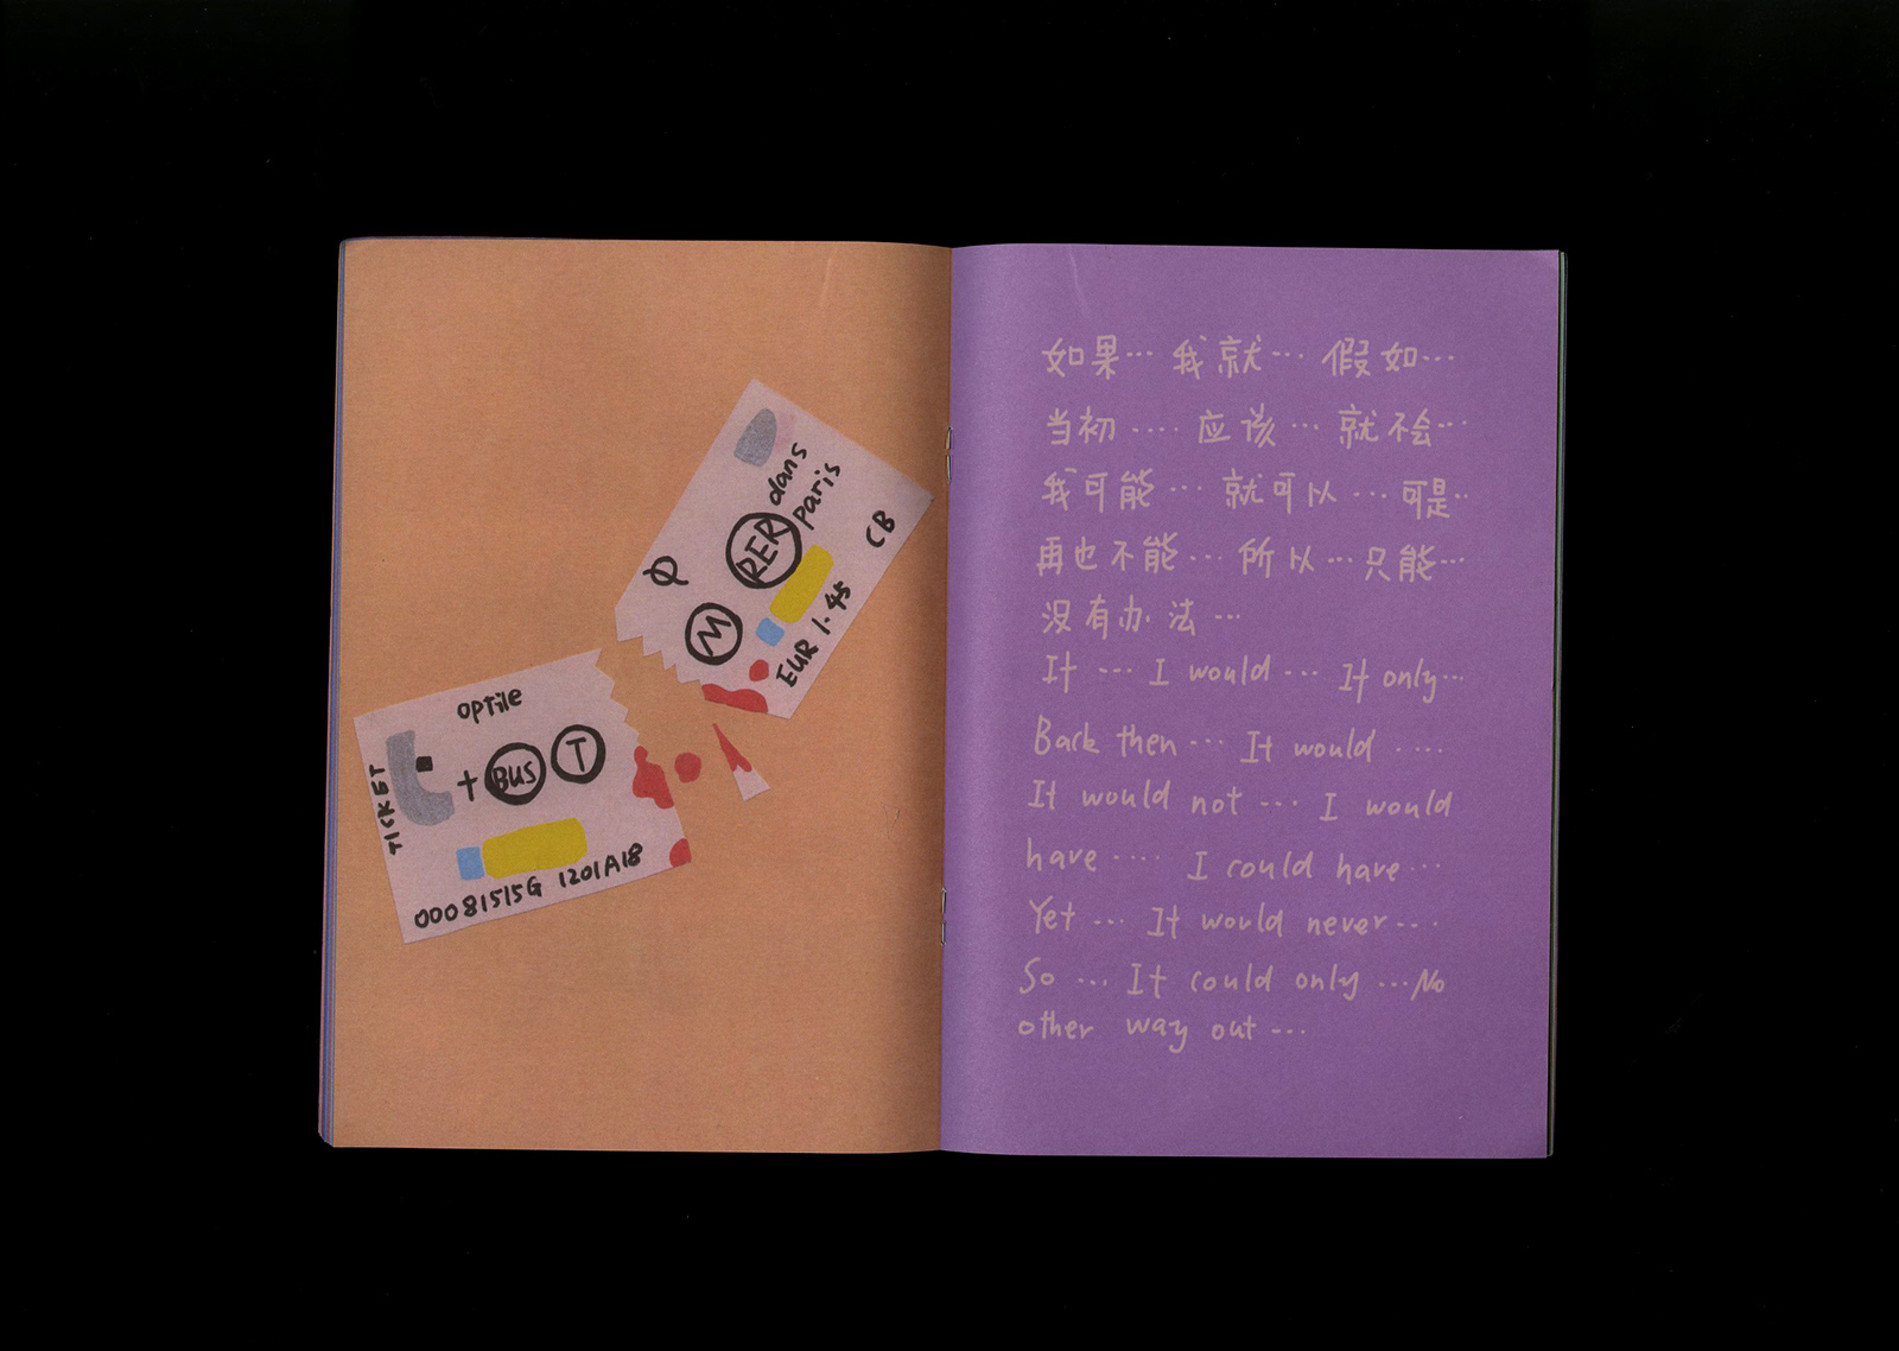 TICKET
OPTile
+ BUS T
00081515G 1201A18
dans
RER Paris
M
EUR 1.45
CB
如果… 我就… 假如…
当初….. 应该… 就不会…
我可能… 就可以… 可是..
再也不能… 所以…只能…
没有办法…
If … I would … If only…
Back then… It would …..
It would not … I would
have ….. I could have…
Yet … It would never….
So … It could only …No
other way out …